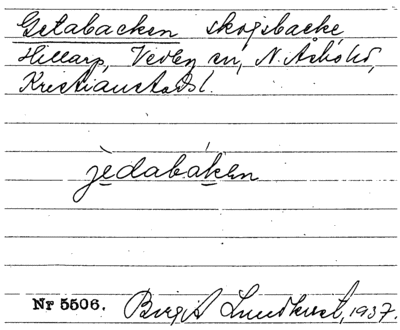 Getabacken skogsbacke
Hillarp, Vedby sn, N. Åsbo hd,
Kristianstads l.
jèdabáken
Nr 5506. Birgit Lundkvist, 1937.